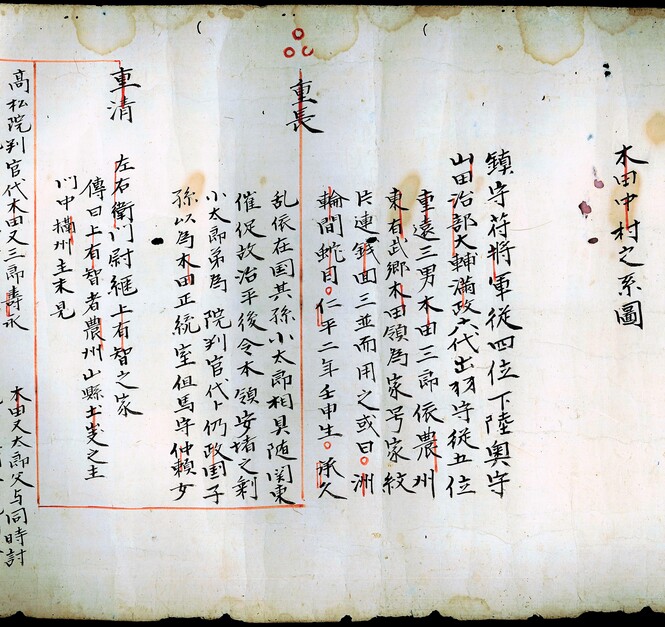 木田中村之系圖
鎮守苻將軍從四位下陸奥守
山田治部大輔滿政六代出羽守從五位
重遠三男木田三郎依農州
東有武郷木田領為家号家紋
片連銭面三並而用之或曰洲
輪間蛇目仁平二年壬申生承久
重長
乱依在国其孫小太郎相具随関東
催促故治平後令本領安堵之剰
小太郎弟為院判官代卜仍政国子
孫以為木田正統室但馬守仲頼女
重清
左右衛門尉継上有智之家
傳曰上有智者農州山縣土岐之主
門中横州主未見
高松院判官代木田又三郎壽永
木田又太郎父与同時討